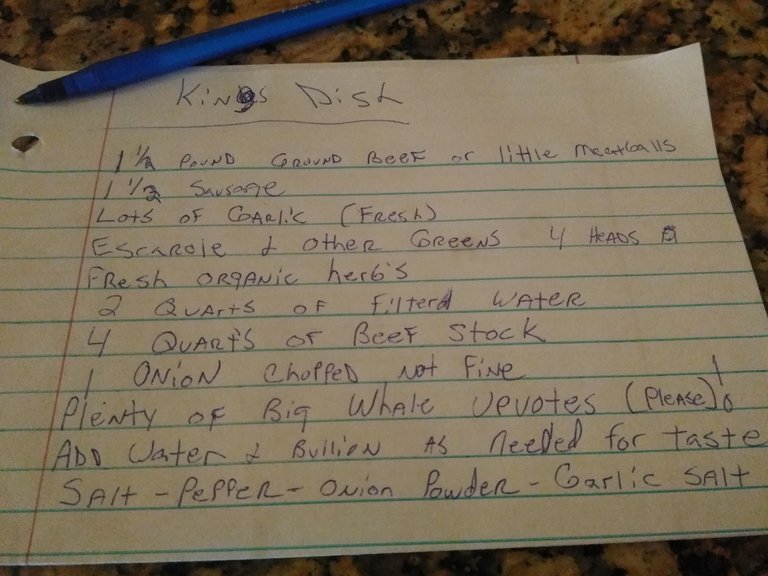 Kings Dish
1 1/2 Pound Ground Beef or little meatballs
1 1/2 Sausage
Lots of Garlic (Fresh)
Escarole & other Greens 4 Heads
Fresh organic herb's
2 Quarts of filterd water
4 Quarts of Beef Stock
1 Onion Chopped not Fine
Plenty of Big Whale Upvotes (Please)!
Add Water & Bullion as needed for taste
Salt - Pepper - Onion Powder - Garlic Salt